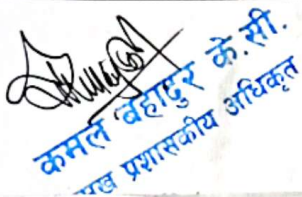 कमल बहादुर के.सी.
मुख प्रशासकीय अधिकृत